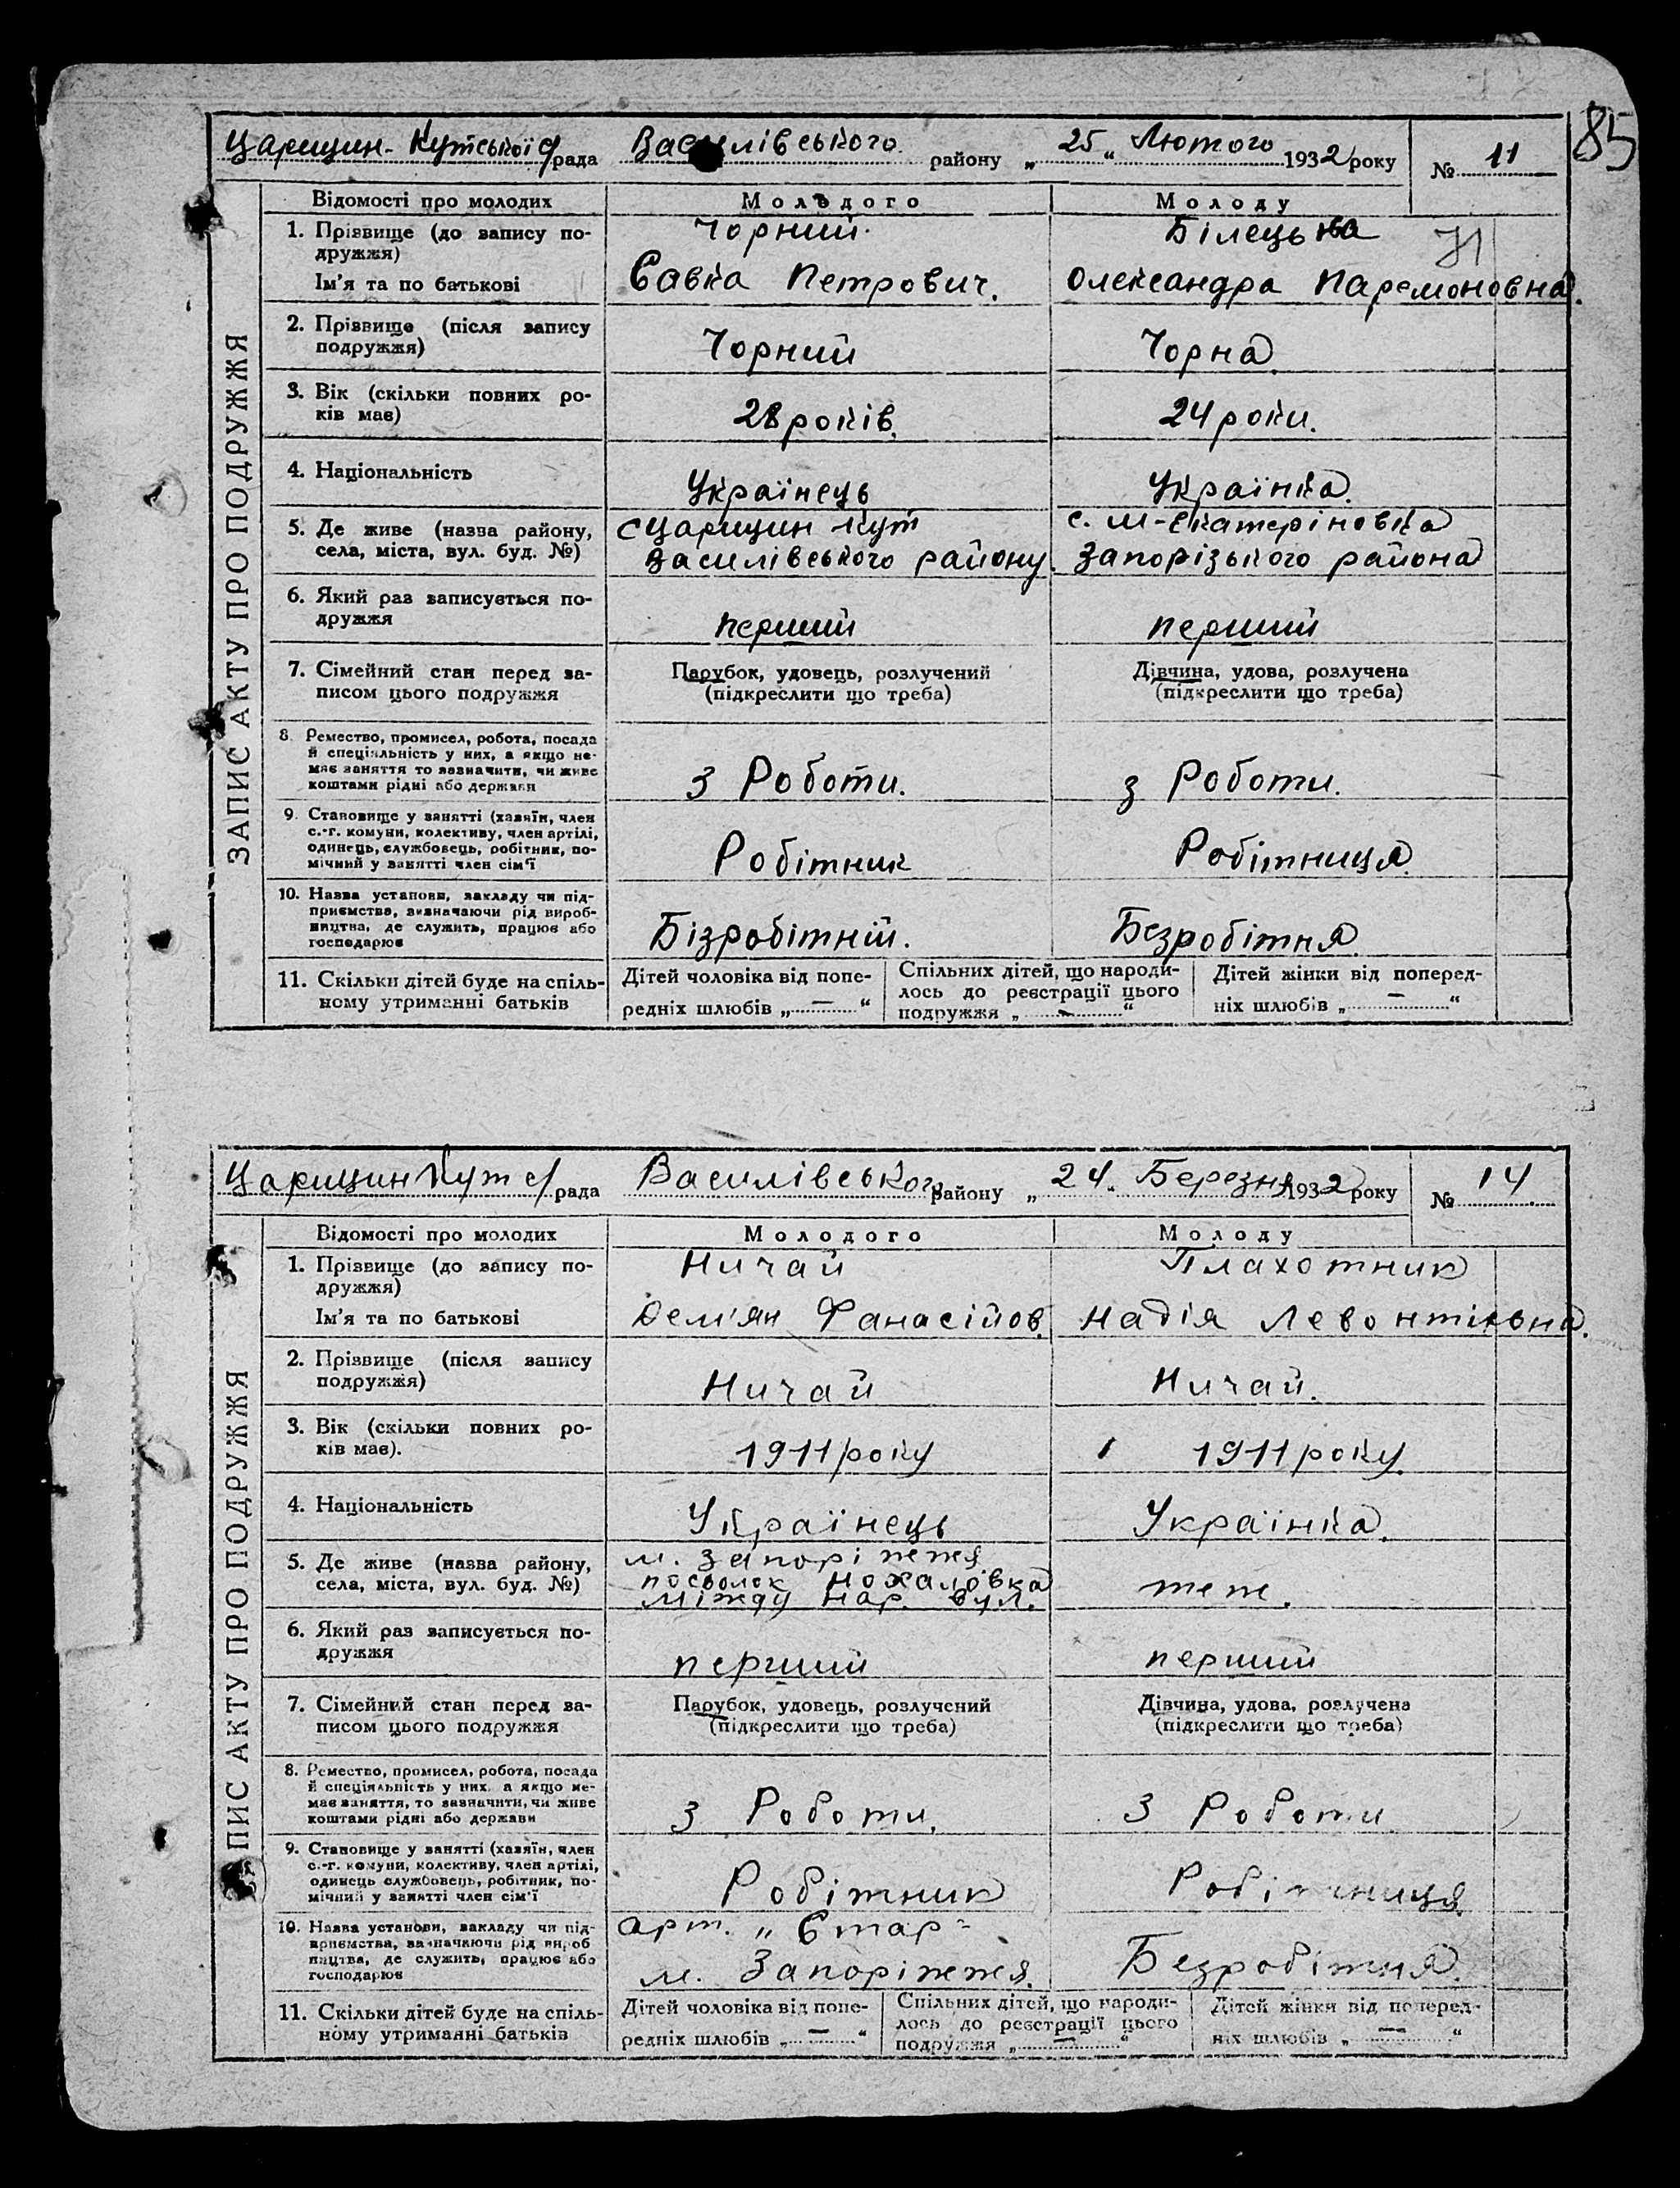 85
Царицин-Кутської с/рада Василівського району „25“ Лютого 1932 року № 11
ЗАПИС АКТУ ПРО ПОДРУЖЖЯ
Відомості про молодих Молодого Молоду
1. Прізвище (до запису по- Чорний Білецька
дружжя)
Ім'я та по батькові Савка Петрович. Олександра Парамоновна.
2. Прізвище (після запису
подружжя) Чорний Чорна
3. Вік (скільки повних ро-
ків має) 28 років. 24 роки.
4. Національність Українець Українка.
5. Де живе (назва району, с Царицин Кут с. М-Екатеріновка
села, міста, вул. буд. №) Василівського району. Запорізького района
6. Який раз записується по-
дружжя перший перший
7. Сімейний стан перед за- Парубок, удовець, розлучений Дівчина, удова, розлучена
писом цього подружжя (підкреслити що треба) (підкреслити що треба)
8. Ремество, промисел, робота, посада
й спеціяльність у них, а якщо не-
має заняття то зазначити, чи живе
коштами рідні або держави З Роботи. з Роботи.
9. Становище у занятті (хазяїн, член
с.-г. комуни, колективу, член артілі,
одинець, службовець, робітник, по-
мічний у занятті член сім'ї Робітник Робітниця.
10. Назва установи, закладу чи під-
приємства, визначаючи рід вироб-
ництва, де служить, працює або
господарює Бізробітній. Безробітня
11. Скільки дітей буде на спіль- Дітей чоловіка від попе- Спільних дітей, що народи- Дітей жінки від поперед-
ному утриманні батьків редніх шлюбів „—“ лось до реєстрації цього ніх шлюбів „—“
подружжя „—“
Царицин Кут с/рада Василівського району „24“ Березня 1932 року № 14
ПИС АКТУ ПРО ПОДРУЖЖЯ
Відомості про молодих Молодого Молоду
1. Прізвище (до запису по- Ничай Плахотник
дружжя)
Ім'я та по батькові Дем'ян Фанасійов. Надія Левонтівна.
2. Прізвище (після запису
подружжя) Ничай Ничай.
3. Вік (скільки повних ро-
ків має). 1911 року 1911 року.
4. Національність Українець Українка.
5. Де живе (назва району, м. Запоріжжя
села, міста, вул. буд. №) посьолок теже.
Між нар. вул.
6. Який раз записується по-
дружжя перший перший
7. Сімейний стан перед за- Парубок, удовець, розлучений Дівчина, удова, розлучена
писом цього подружжя (підкреслити що треба) (підкреслити що треба)
8. Ремество, промисел, робота, посада
й спеціяльність у них, а якщо не-
має заняття, то зазначити, чи живе
коштами рідні або держави З Роботи. З Роботи
9. Становище у занятті (хазяїн, член
с.-г. комуни, колективу, член артілі,
одинець службовець, робітник, по-
мічний у занятті член сім'ї Робітник Робітниця.
10. Назва установи, закладу чи під- арт. „Єтар“
приємства, вазначаючи рід вироб
ництва, де служить, працює або
господарює м. Запоріжжя. Безробітня.
11. Скільки дітей буде на спіль- Дітей чоловіка від попе- Спільних дітей, що народи- Дітей жінки від поперед-
ному утриманні батьків редніх шлюбів „—“ лось до реєстрації цього ніх шлюбів „—“
подружжя „—“